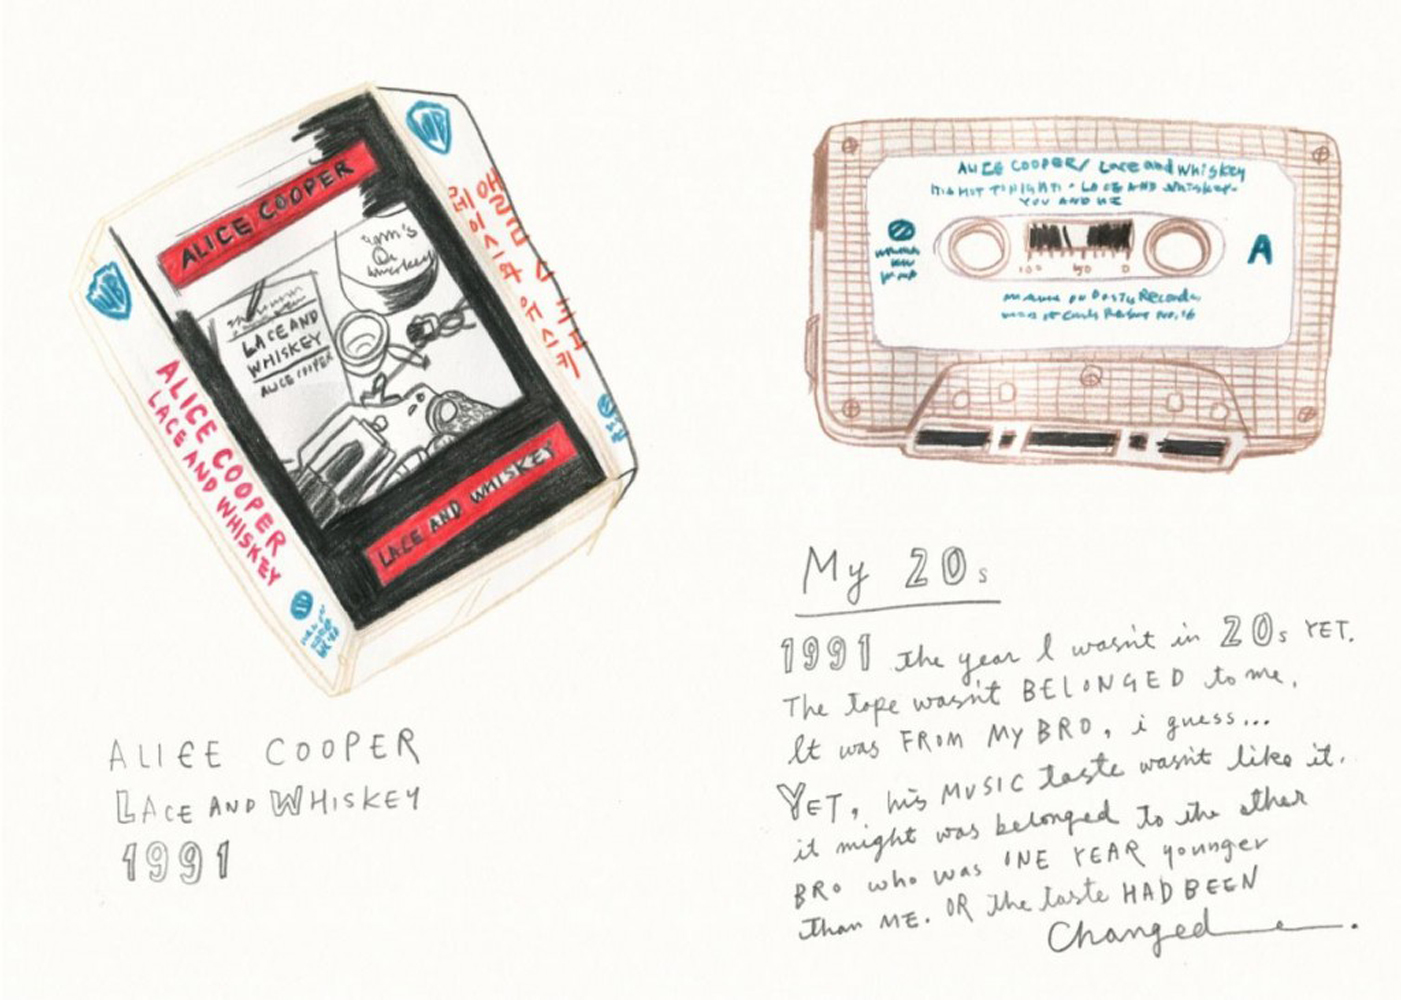 ALICE COOPER
LACE AND WHISKEY
ALICE COOPER
LACE AND WHISKEY
WB
WB
ALICE COOPER
LACE AND WHISKEY
레이스와 위스키
ALICE COOPER
LACE AND WHISKEY
1991
ALICE COOPER / Lace and Whiskey
LACE AND WHISKEY
YOU AND ME
A
100 50 0
My 20s
1991 the year I wasn't in 20s YET.
The tape wasn't BELONGED to me.
It was FROM MY BRO, i guess...
YET, his MUSIC taste wasn't like it.
it might was belonged to the other
BRO who was ONE YEAR younger
than ME. OR the taste HAD BEEN
Changed.